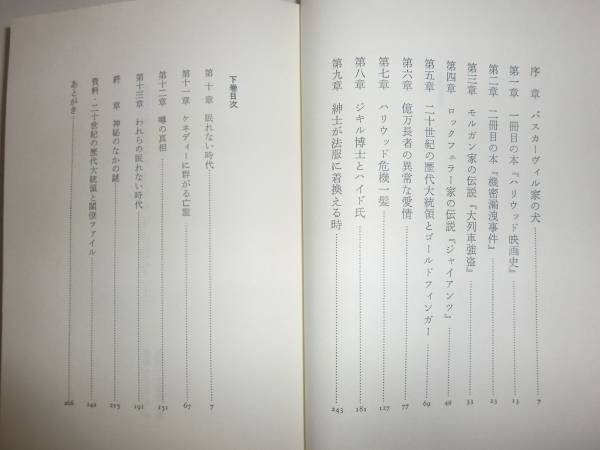 序 章 バスカーヴィル家の犬 7
第一章 一冊目の本『ハリウッド映画史』 13
第二章 二冊目の本『機密漏洩事件』 23
第三章 モルガン家の伝説『大列車強盗』 33
第四章 ロックフェラー家の伝説『ジャイアンツ』 48
第五章 二十世紀の歴代大統領とゴールドフィンガー 69
第六章 億万長者の異常な愛情 77
第七章 ハリウッド危機一髪 127
第八章 ジキル博士とハイド氏 181
第九章 紳士が法服に着換える時 243
下巻目次
第十章 眠れない時代 7
第十一章 ケネディーに群がる亡霊 67
第十二章 噂の真相 151
第十三章 われらの眠れない時代 191
終 章 神秘のなかの謎 215
資料・二十世紀の歴代大統領と閣僚ファイル 241
あとがき 266